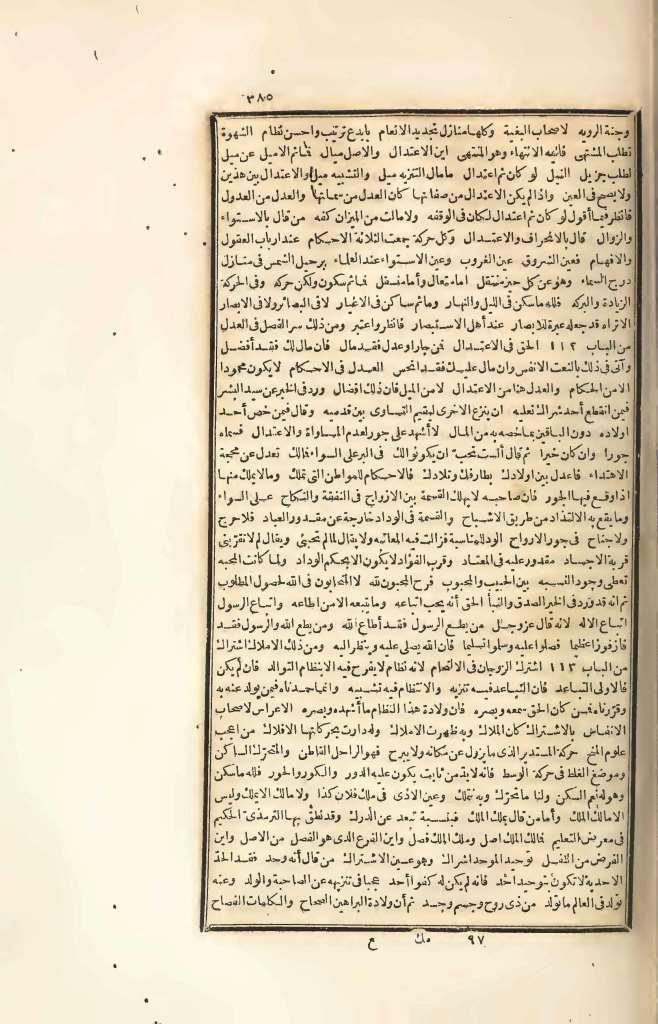 ٣٨٥
وجنة الرويه لاصحاب البغية وكلها منازل تجديد الانعام بابدع ترتيب واحسن نظام الشهوة
تطلب المشتهى فاليه الانتهاء وهو المنتهى اين الاعتدال والاصل ميال فما ثم الاميل عن ميل
لطلب جزيل النيل لو كان ثم اعتدال ما مال التنزيه ميل والتشبيه ميل والاعتدال بين هذين
ولا يصح فى العين واذ لم يكن الاعتدال من صفاتها كان العدل من سماتها والعدل من العدول
فانظر فيما أقول لو كان ثم اعتدال لكان فى الوقفه ولا مالت من الميزان كفه من قال بالاستواء
والزوال قال بالانحراف والاعتدال وكل حركة جمعت الثلاثة الاحكام عند ارباب العقول
والافهام فعين الشروق عين الغروب وعين الاستواء عند العلماء برحيل الشمس فى منازل
درج السماء وهو عن كل حيز منتقل اما متعال وأما منسفل فما ثم سكون ولكن حركه وفى الحركة
الزيادة والبركه فلله ما سكن فى الليل والنهار وما ثم ساكن فى الاغيار لا فى البصائر ولا فى الابصار
الا تراه قد جعله عبرة للابصار عند أهل الاستبصار فانظر واعتبر ومن ذلك سر الفصل فى العدل
من الباب ١١٢ الحق فى الاعتدال فمن جار او عدل فقد مال فان مال لك فقد أفضل
وآتى فى ذلك بالنعت الانفس وان مال عليك فقد انحس العدل فى الاحكام لا يكون محمودا
الا من الحكام والعدل هنا من الاعتدال لا من الميل فان ذلك افضال ورد فى الخبر عن سيد البشر
فيمن انقطع أحد شراك نعليه ان ينزع الاخرى ليقيم التساوى بين قدميه وقال فيمن خص أحد
اولاده دون الباقين بما خصه به من المال لا أشهد على جور لعدم المساواة والاعتدال فسماه
جورا وان كان خيرا ثم قال ألست تحب ان يكونوا لك فى البر على السواء فمالك تعدل عن محجة
الاهتداء فاعدل بين اولادك بطارفك وتلادك فالاحكام للمواطن التى تملك وما لا يملك منها
اذا وقع فيها الجور فان صاحبه لا يهلك القسمة بين الازواج فى النفقة والنكاح على السواء
وما يقع به الالتذاذ من طريق الاشباح والقسمة فى الوداد خارجة عن مقدور العباد فلا حرج
ولا جناح فى جور الارواح الود للمناسبة فزالت فيه المعاتبه ولا يقال لم لم تحبنى ويقال لم لا تقربنى
قربة الاجساد مقدور عليه فى المعتاد وقرب الفؤاد لا يكون الا بحكم الوداد ولما كانت المحبه
تعطى وجود النسبه بين الحبيب والمحبوب فرح المحبون لله لا المتحابون فى الله لحصول المطلوب
ثم انه قد ورد فى الخبر الصدق والنبأ الحق أنه يحب اتباعه وما يتبعه الا من اطاعه واتباع الرسول
اتباع الاله لانه قال عز وجل من يطع الرسول فقد أطاع الله ومن يطع الله والرسول فقد
فاز فوزا عظيما فصلوا عليه وسلموا تسليما فان الله يصلى عليه وينظر اليه ومن ذلك الاملاك اشتراك
من الباب ١١٣ اشترك الزوجان فى الالتحام لانه نظام لا يفرح فيه الا بنظام التوالد فان لم يكن
فالاولى التباعد فان التباعد فيه تنزيه والانتظام فيه تشبيه وانما حمدناه فيمن يولد عنه به
وقررناه فيمن كان الحق سمعه وبصره فان ولادة هذا النظام ما أشهده وبصره الاعراس لاصحاب
الانفاس بالاشتراك كان الملاك وبه ظهرت الاملاك وله دارت بحركاتها الافلاك من اعجب
علوم المنح حركة المستدير الذى ما يزول عن مكانه ولا يبرح فهو الراحل القاطن والمتحرك الساكن
وموضع الغلط فى حركة الوسط فانه لابد من ثابت يكون عليه الدور والكور والحور فلله ما سكن
وهو له نعم السكن ولنا ما تحرك وبه نتملك وعين الاذى فى ملك فلان كذا ولا مالك الا يملك وليس
الا مالك الملك وأما من قال بملك الملك فبنسبة تبعد عن الدرك وقد نطق بها الترمذى الحكيم
فى معرض التعليم فمالك الملك اصل وملك الملك فصل واين الفرع الذى هو الفصل من الاصل واين
الفرض من النفل توحيد الموحد اشراك وهو عين الاشتراك من قال أنه وحد فقد الحد
الاحدية لا تكون بتوحيد أحد فانه لم يكن له كفوا أحد عجبا فى تنزيهه عن الصاحبة والولد وعنه
تولد فى العالم ما تولد من ذى روح وجسم وجسد ثم أن ولادة البراهين الصحاح والكلمات الفصاح
٩٧ مك ع